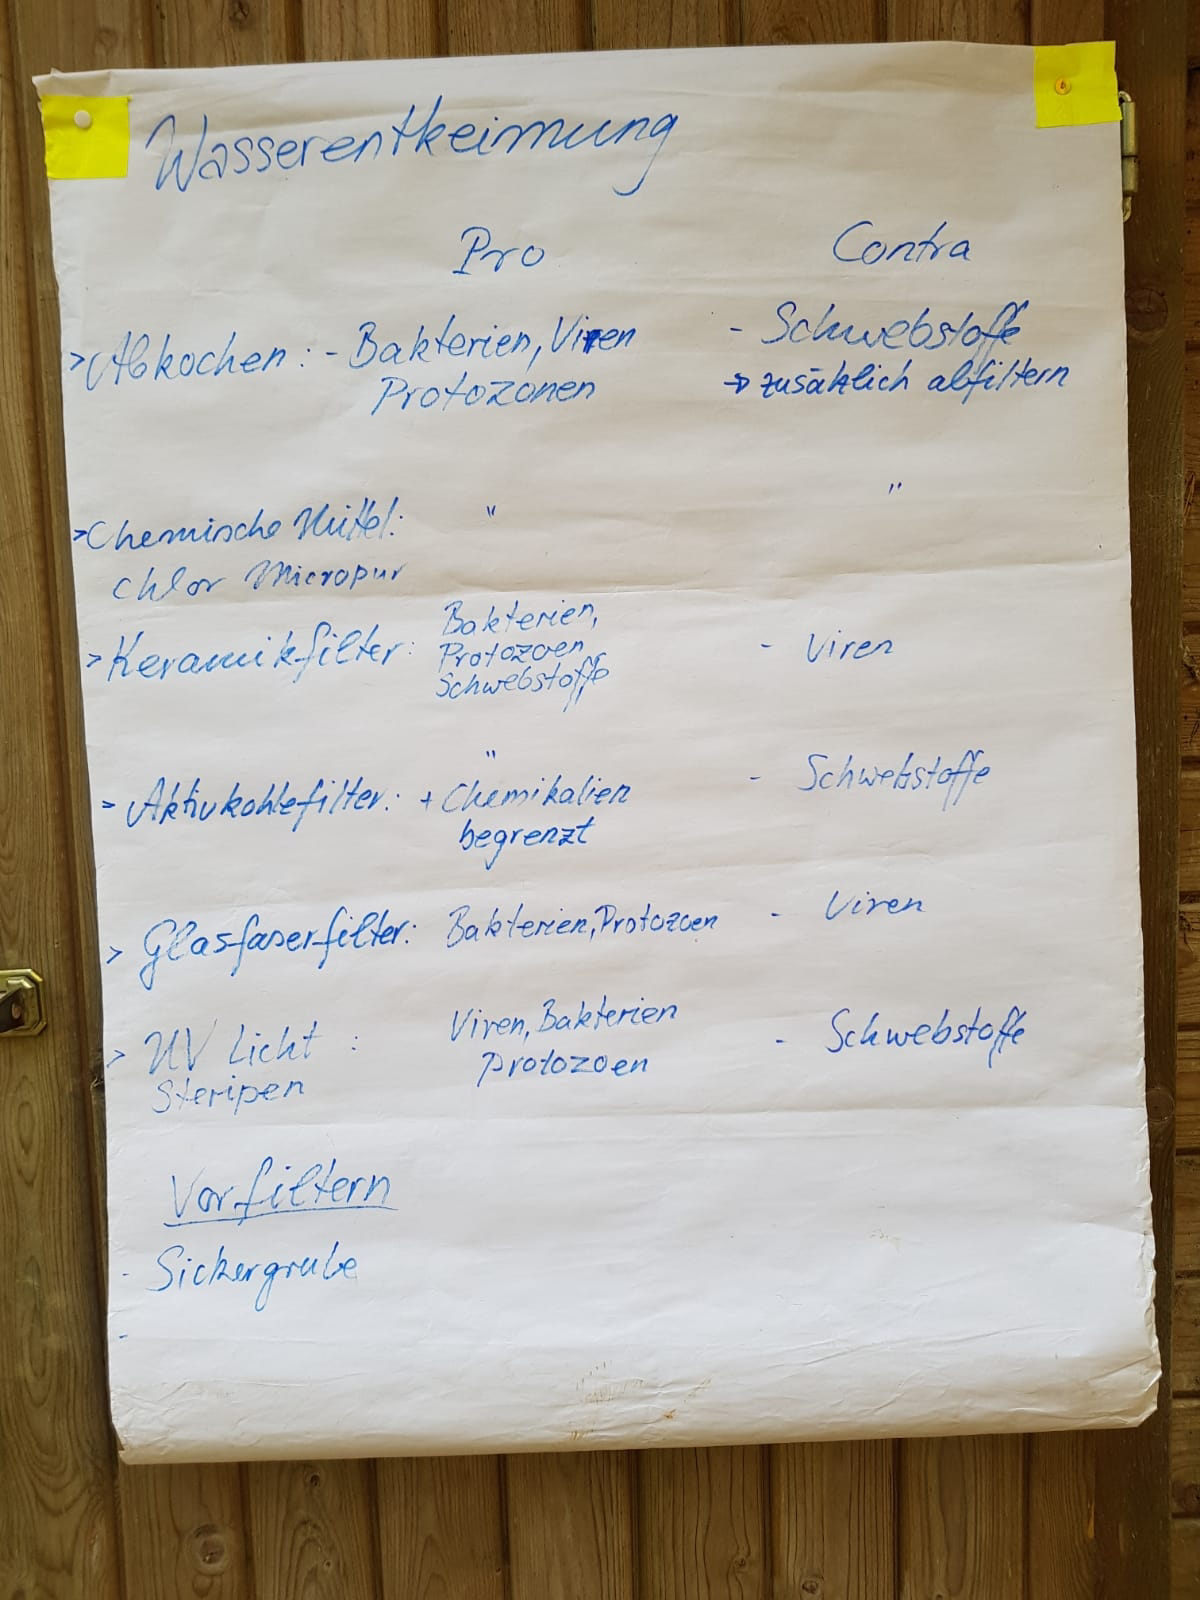 Wasserentkeimung
Pro Contra
> Abkochen: - Bakterien, Viren - Schwebstoffe
Protozonen → zusätzlich abfiltern
> Chemische Mittel: " "
Chlor Micropur
> Keramikfilter: Bakterien, - Viren
Protozoen
Schwebstoffe
"
> Aktivkohlefilter: + Chemikalien - Schwebstoffe
begrenzt
> Glasfaserfilter: Bakterien, Protozoen - Viren
> UV Licht : Viren, Bakterien - Schwebstoffe
Steripen Protozoen
Vorfiltern
- Sickergrube
-